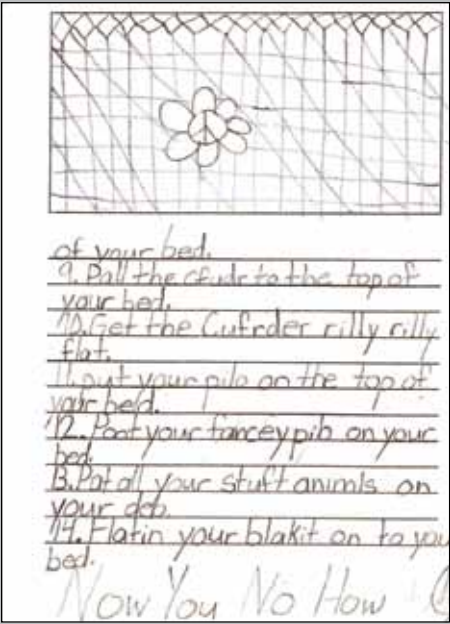 of your bed.
9. Pall the cfudr to the top of
your bed.
10. Get the Cufrder rilly rilly
flat.
11. put your pilo on the top of
your bed.
12. Poot your fancey pilo on your
bed.
13. Pat all your stuft animls on
your deb.
14. Flatin your blakit on to you
bed.
Now You No How